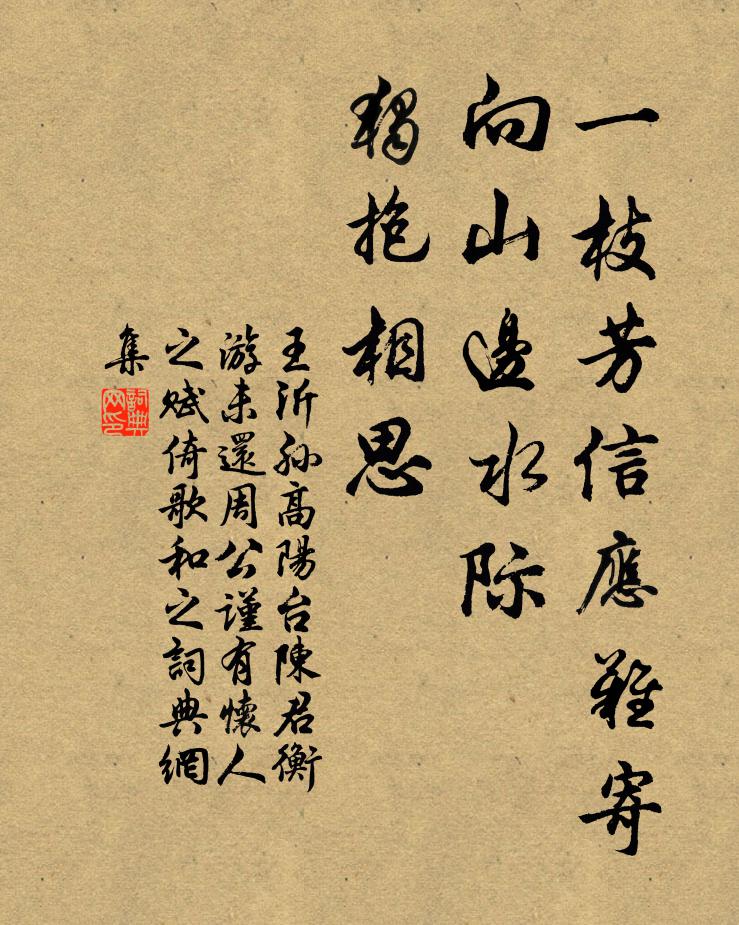 一枝芳信應難寄
向山邊水际
獨抱相思
王沂孙高陽台陳君衡
游未還周公謹有懷人
之賦倚歌和之詞典網
集
詞典網印